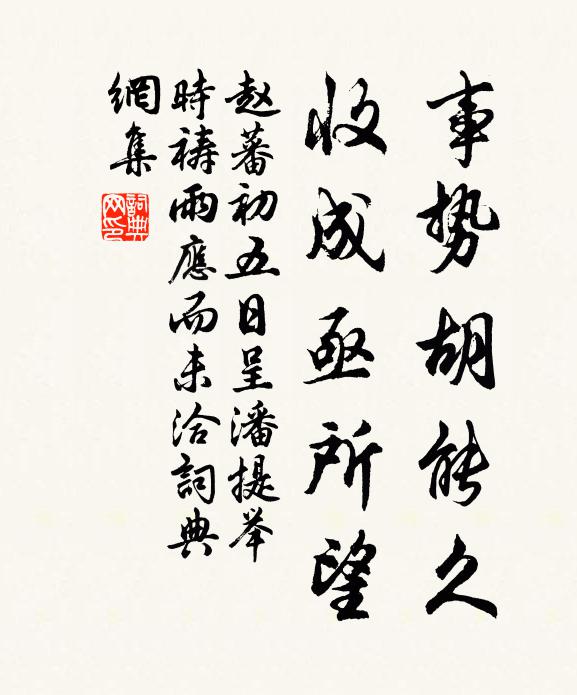 事势胡能久
收成亟所望
赵蕃初五日呈潘提举
時祷雨應而未洽詞典
網集
詞典网印